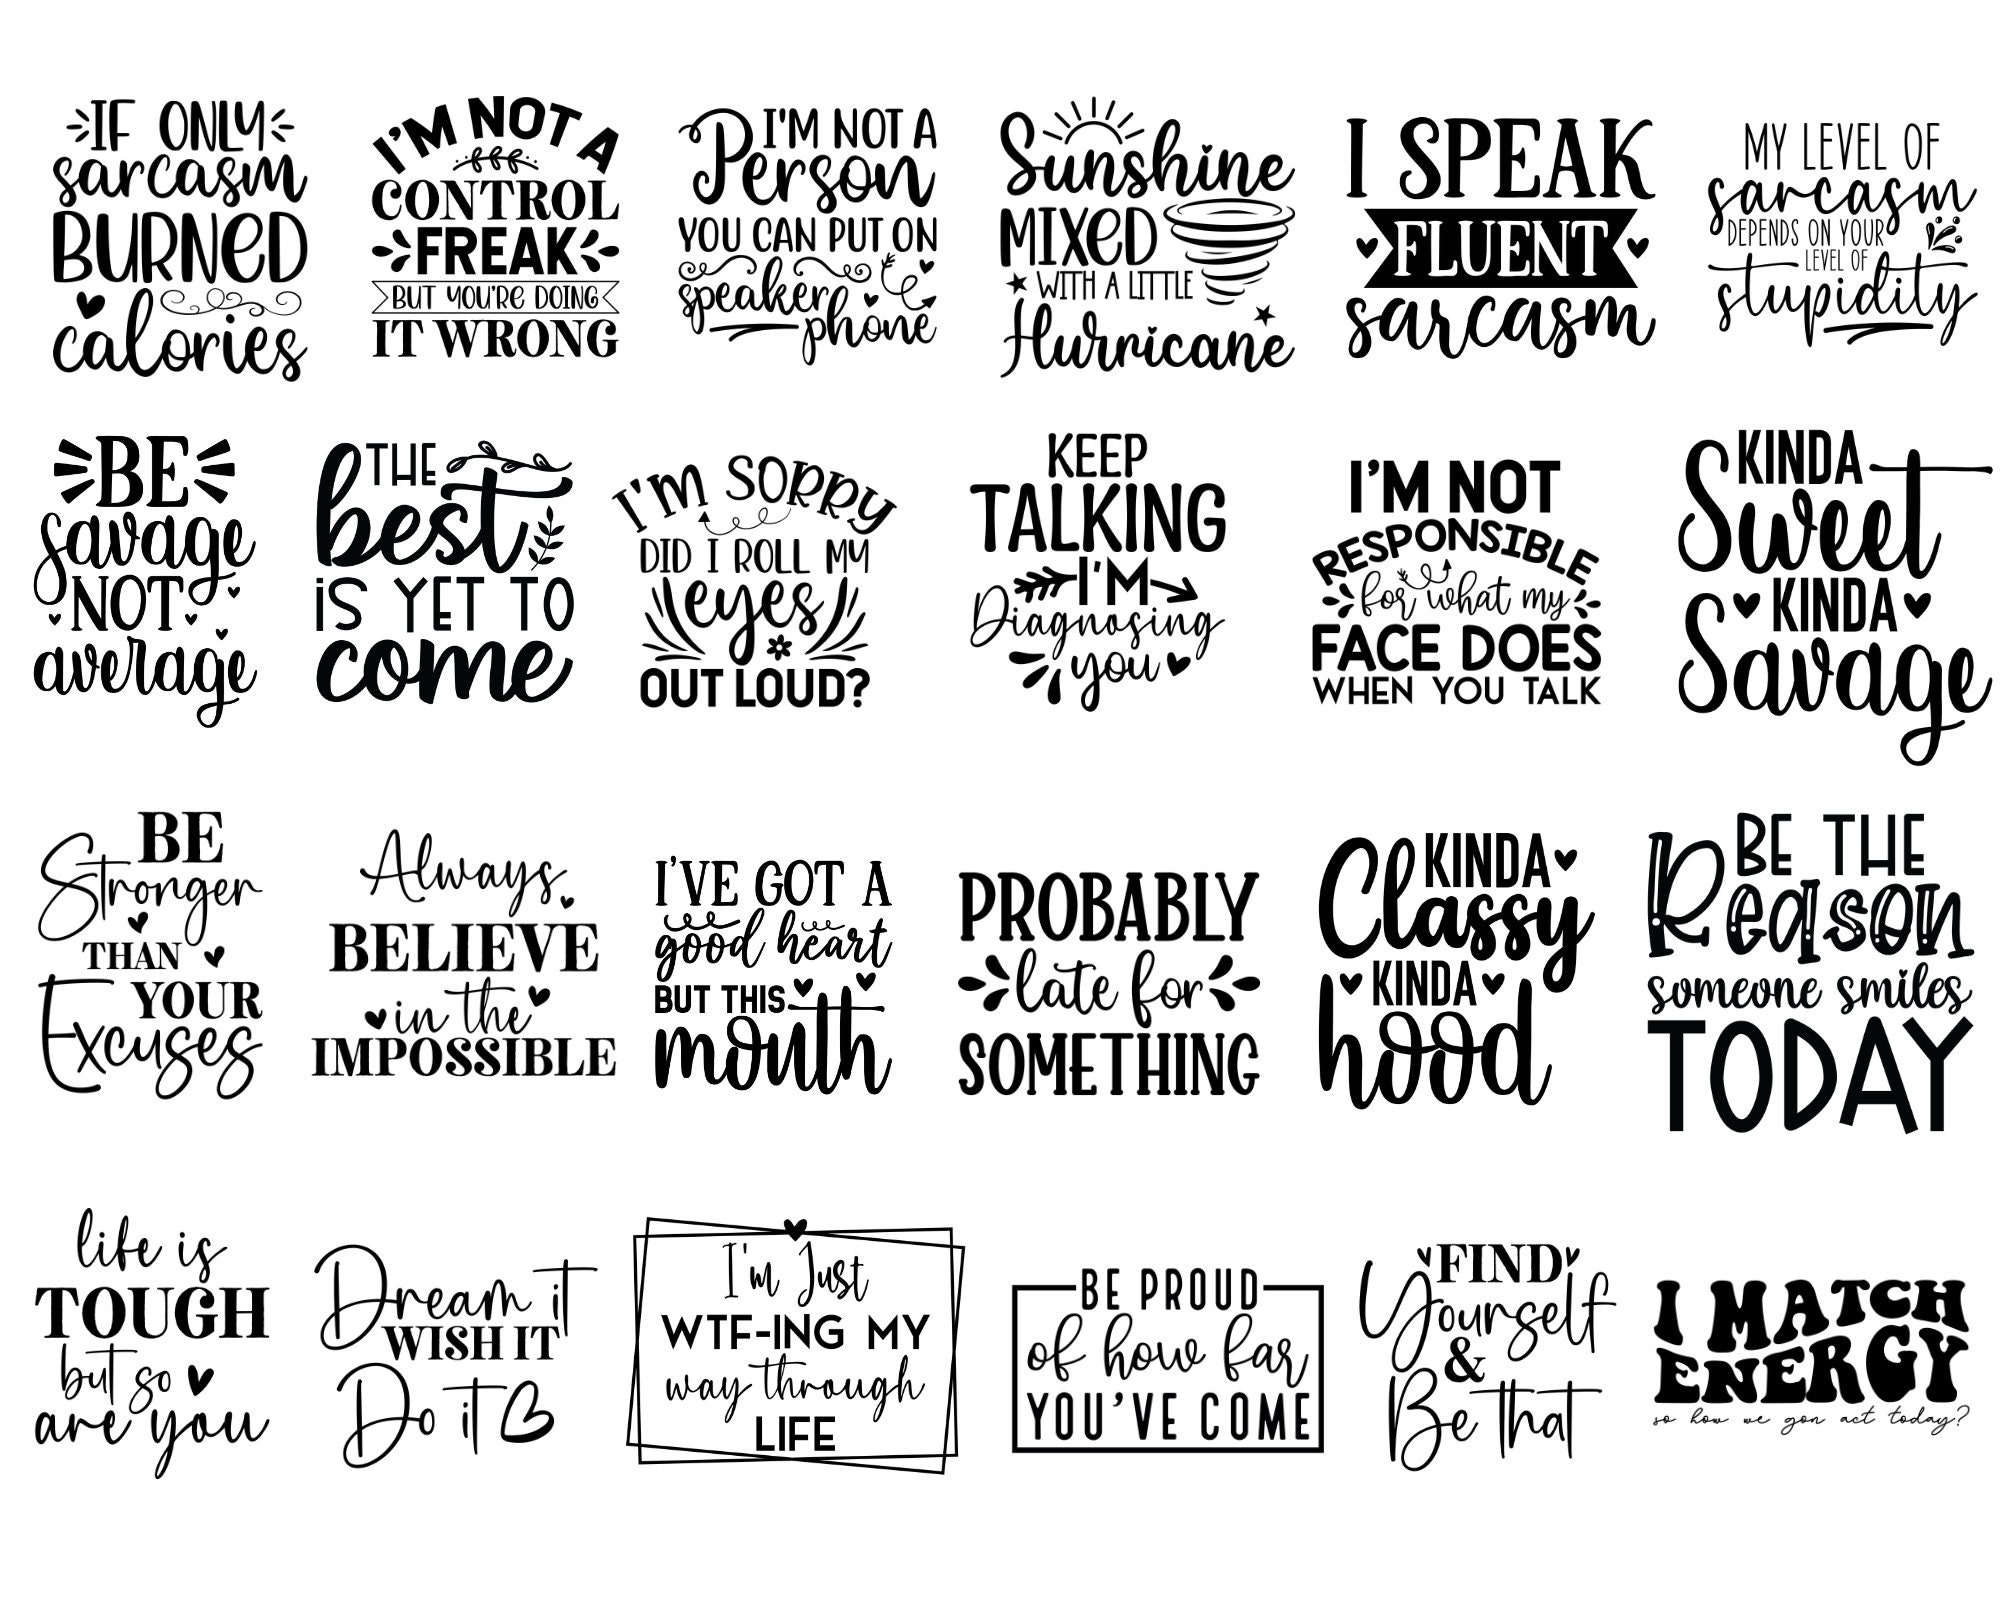 IF ONLY
sarcasm
BURNED
calories
I'M NOT A
CONTROL
FREAK
BUT YOU'RE DOING
IT WRONG
I'M NOT A
Person
YOU CAN PUT ON
speaker
phone
Sunshine
MIXED
WITH A LITTLE
Hurricane
I SPEAK
FLUENT
sarcasm
MY LEVEL OF
sarcasm
DEPENDS ON YOUR
LEVEL OF
stupidity
BE
savage
NOT
average
THE
best
IS YET TO
come
I'M SORRY
DID I ROLL MY
eyes
OUT LOUD?
KEEP
TALKING
I'M
Diagnosing
you
I'M NOT
RESPONSIBLE
for what my
FACE DOES
WHEN YOU TALK
KINDA
Sweet
KINDA
Savage
BE
Stronger
THAN
YOUR
Excuses
Always
BELIEVE
in the
IMPOSSIBLE
I'VE GOT A
good heart
BUT THIS
mouth
PROBABLY
late for
SOMETHING
KINDA
Classy
KINDA
hood
BE THE
Reason
someone smiles
TODAY
life is
TOUGH
but so
are you
Dream it
WISH IT
Do it
I'm Just
WTF-ING MY
way through
LIFE
BE PROUD
of how far
YOU'VE COME
FIND
Yourself
&
Be that
I MATCH
ENERGY
so how we gon act today?